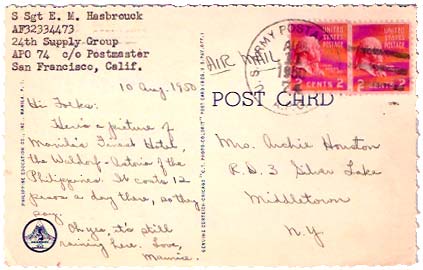 S Sgt E. M. Hasbrouck
AF32334473
24th Supply Group
APO 74 c/o Postmaster
San Francisco, Calif.
10 Aug. 1950
Hi Folks:
Here's a picture of
Manila's Finest Hotel,
the Waldorf-Astoria of the
Philippines. It costs 12
pesos a day there, so they
say.
Oh yes, it's still
raining here. Love,
Maurice.
AIR MAIL
U.S. ARMY POSTAL
AUG
1950
UNITED STATES POSTAGE
2 CENTS 2
UNITED STATES POSTAGE
2
POST CARD
Mrs. Archie Houston
R.D. 3 Silver Lake
Middletown
N.Y.
PHILIPPINE EDUCATION CO., INC., MANILA, P. I.
GENUINE CURTEICH-CHICAGO "C.T. PHOTO-COLORIT" POST CARD (REG. U.S. PAT. OFF.)